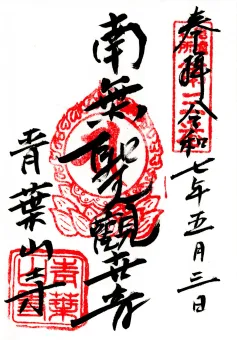 奉拝 令和七年五月三日
南無聖観世音
青葉山寺
青葉山寺